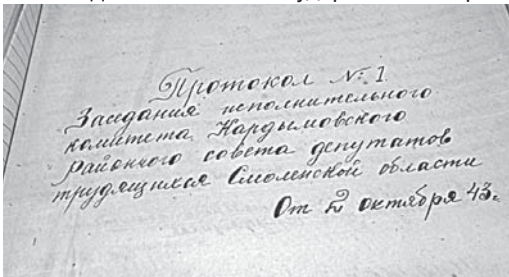 Протокол № 1
Заседания исполнительного
комитета Кардымовского
районного совета депутатов
трудящихся Смоленской области
От 2 октября 43г.